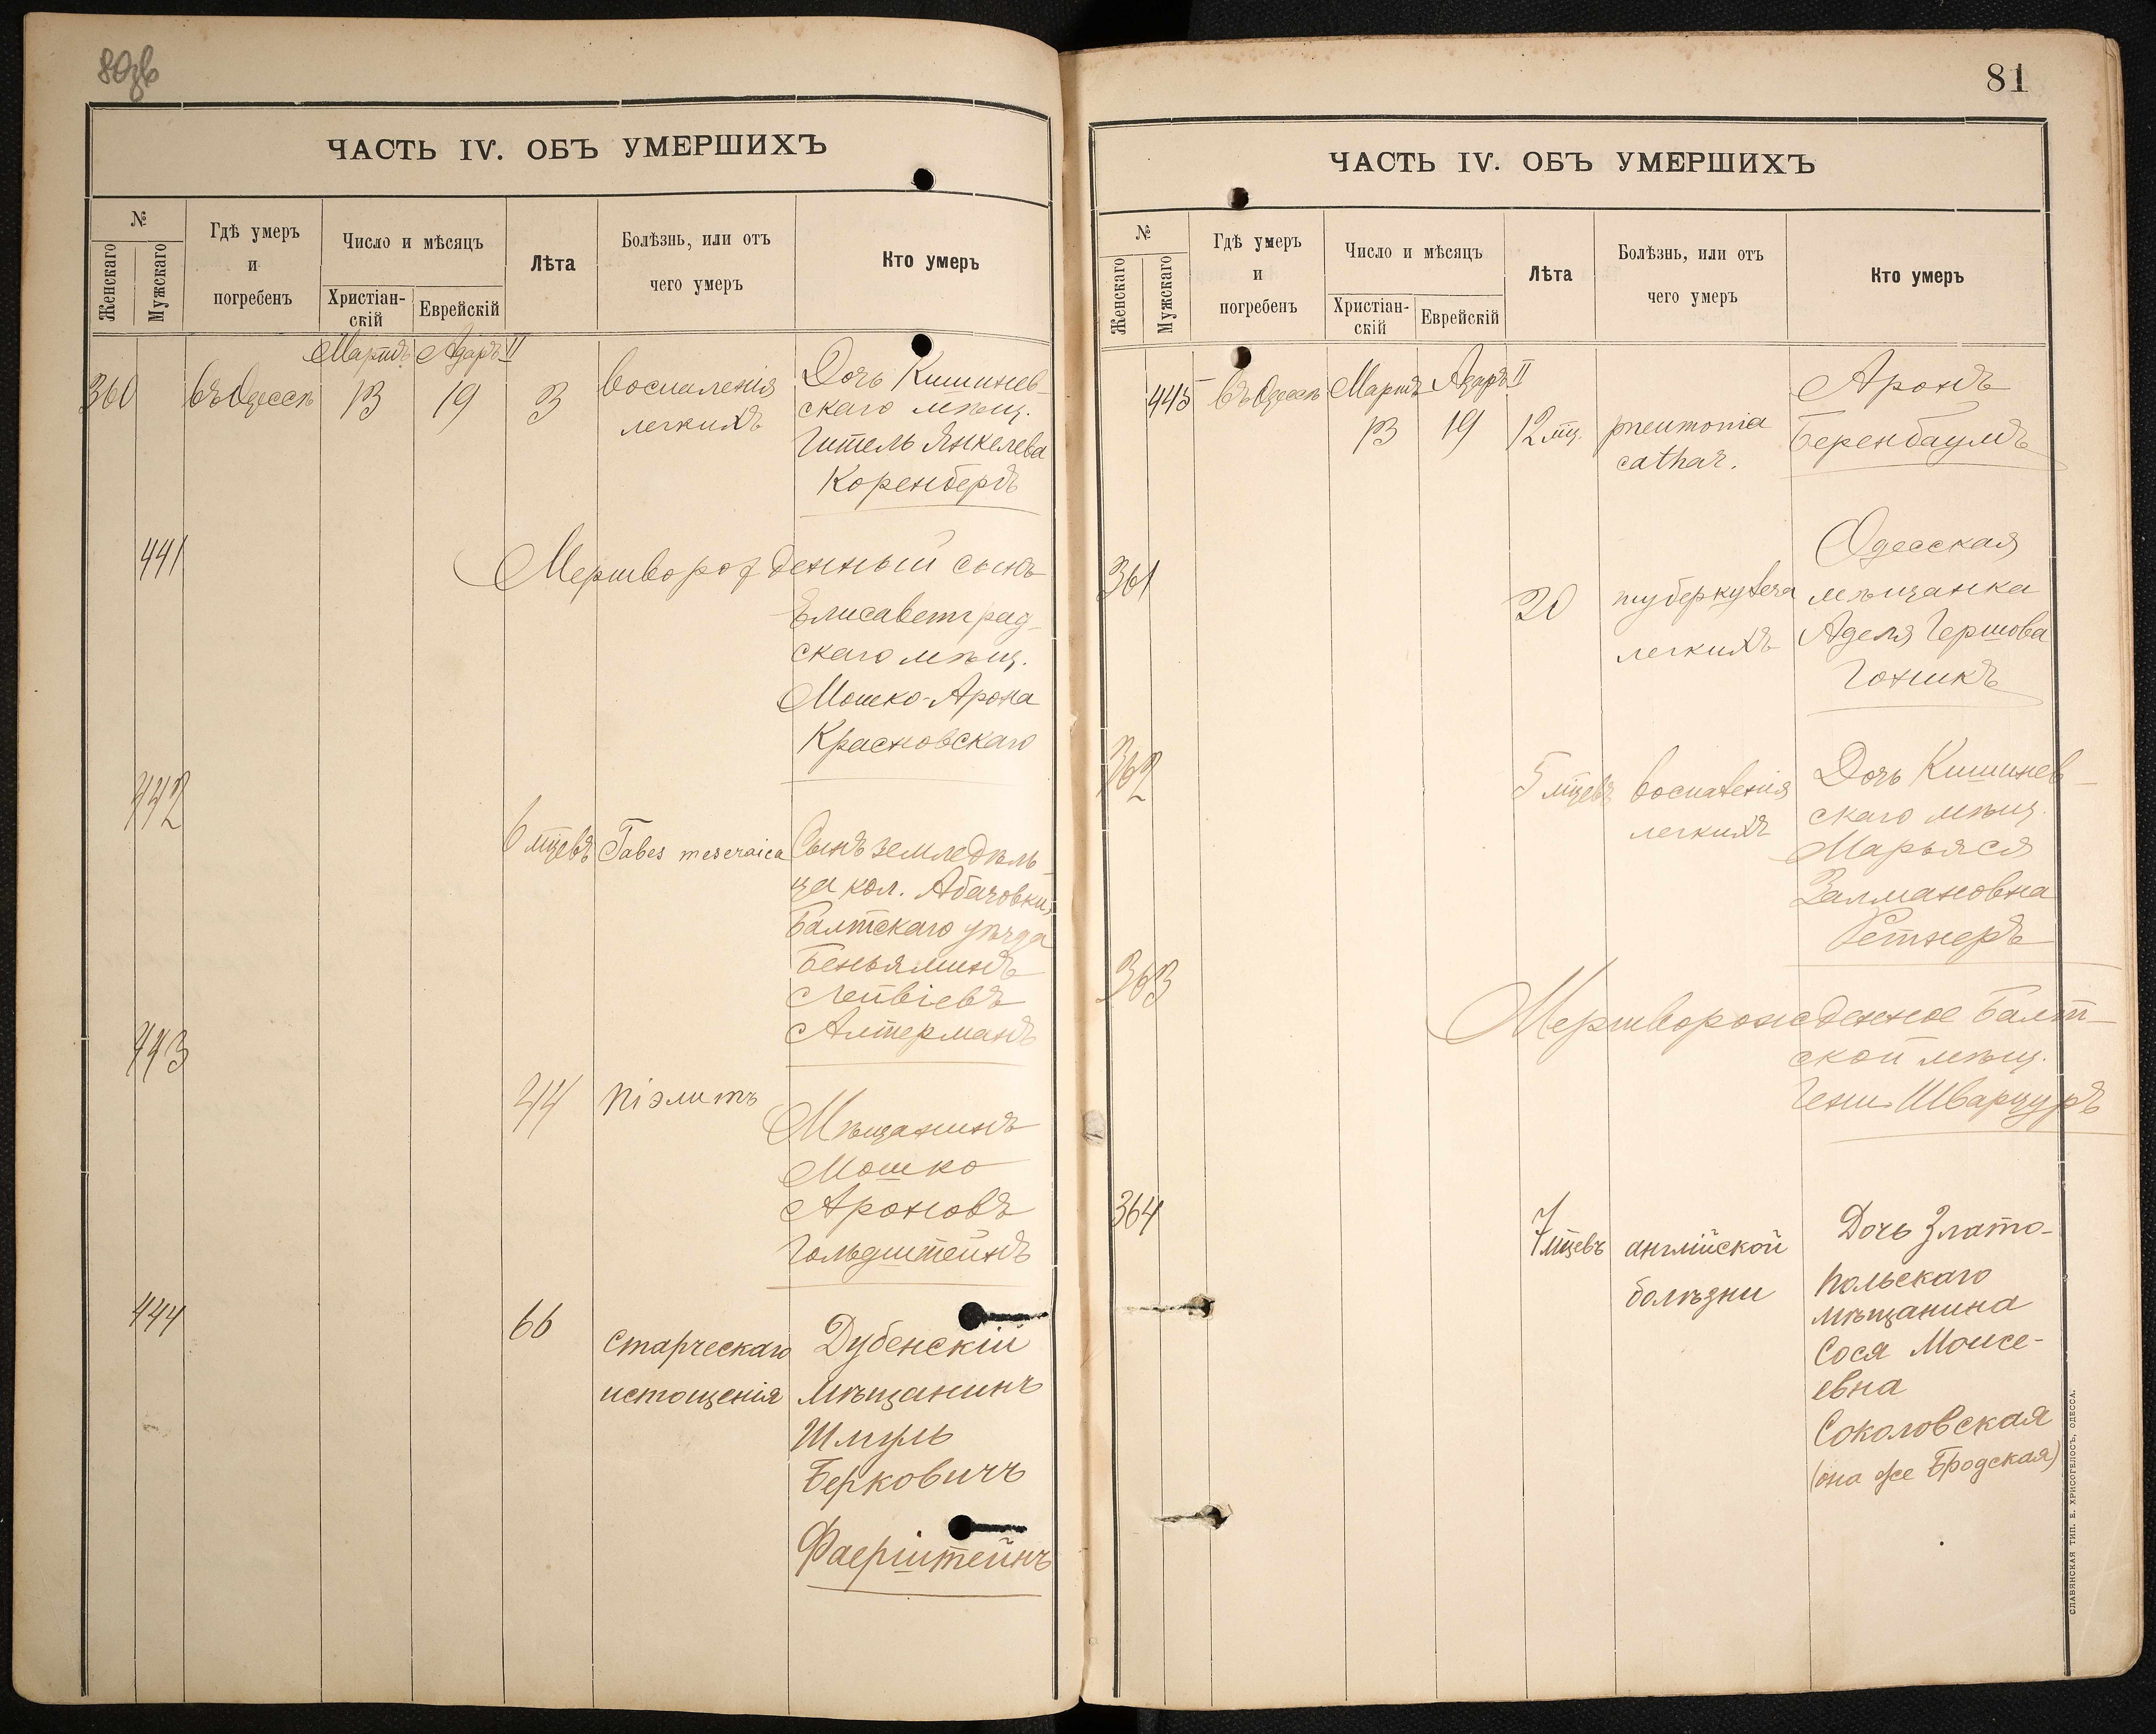 80зв
ЧАСТЬ IV. ОБЪ УМЕРШИХЪ
№
Женскаго
Мужскаго
Гдѣ умеръ
и
погребенъ
Число и мѣсяцъ
Христіан-
скій
Еврейскій
Лѣта
Болѣзнь, или отъ
чего умеръ
Кто умеръ
Мартъ Адаръ II
360 въ Одессѣ 13 19 3
воспаленія
легкихъ
Дочь Кишинев-
скаго мѣщ.
Гитель Янкелева
Коренбергъ
441
Мертворожденный сынъ
Елисаветград-
скаго мѣщ.
Мошко-Арона
Красновскаго
442
6 мцевъ Tabes meseraica
Сынъ земледѣль-
ца кол. Абазовки,
Балтскаго уѣзда
Беньяминъ
Лейвіевъ
Алтерманъ
443
44 піэлитъ
Мѣщанинъ
Мошко
Ароновъ
Гольдштейнъ
444
66
старческаго
истощенія
Дубенскій
мѣщанинъ
Шмуль
Берковичъ
Фаерштейнъ
81
ЧАСТЬ IV. ОБЪ УМЕРШИХЪ
№
Женскаго
Мужскаго
Гдѣ умеръ
и
погребенъ
Число и мѣсяцъ
Христіан-
скій
Еврейскій
Лѣта
Болѣзнь, или отъ
чего умеръ
Кто умеръ
445 въ Одессѣ Мартъ Адаръ II
13 19 12 мц.
pneumonia
cathar.
Аронъ
Беренбаумъ
361
20
туберкулеза
легкихъ
Одесская
мѣщанка
Аделя Гершова
Гоникъ
362
5 мцевъ
воспаленія
легкихъ
Дочь Кишинев-
скаго мѣщ.
Марьяся
Залмановна
Ретнеръ
363
Мертворожденное Балт-
ской мѣщ.
Гени Шварцуръ
364
7 мцевъ
англійской
болѣзни
Дочь Злато-
польскаго
мѣщанина
Сося Моисе-
евна
Соколовская
(она же Бродская)
СЛАВЯНСКАЯ ТИП. Е. ХРИСОГЕЛОСЪ, ОДЕССА.